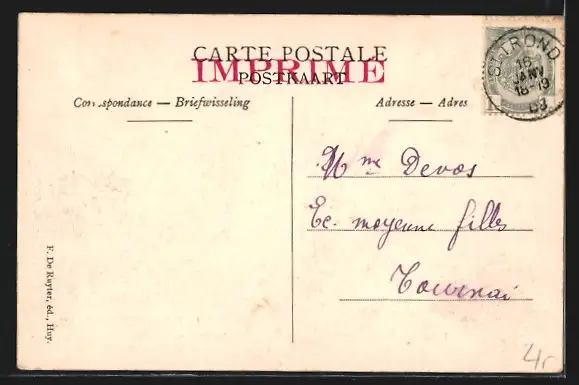 CARTE POSTALE
IMPRIMÉ
POSTKAART
Correspondance — Briefwisseling
Adresse — Adres
ST TROND
16
JANV
18-19
Mme Devos
Ec. moyenne filles
Tournai
F. De Ruyter, éd., Huy.